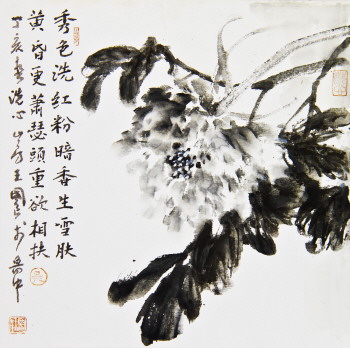 秀色洗红粉暗香生雪肤
黄昏更萧瑟頭重欲相扶
丁亥春洗心山房王國